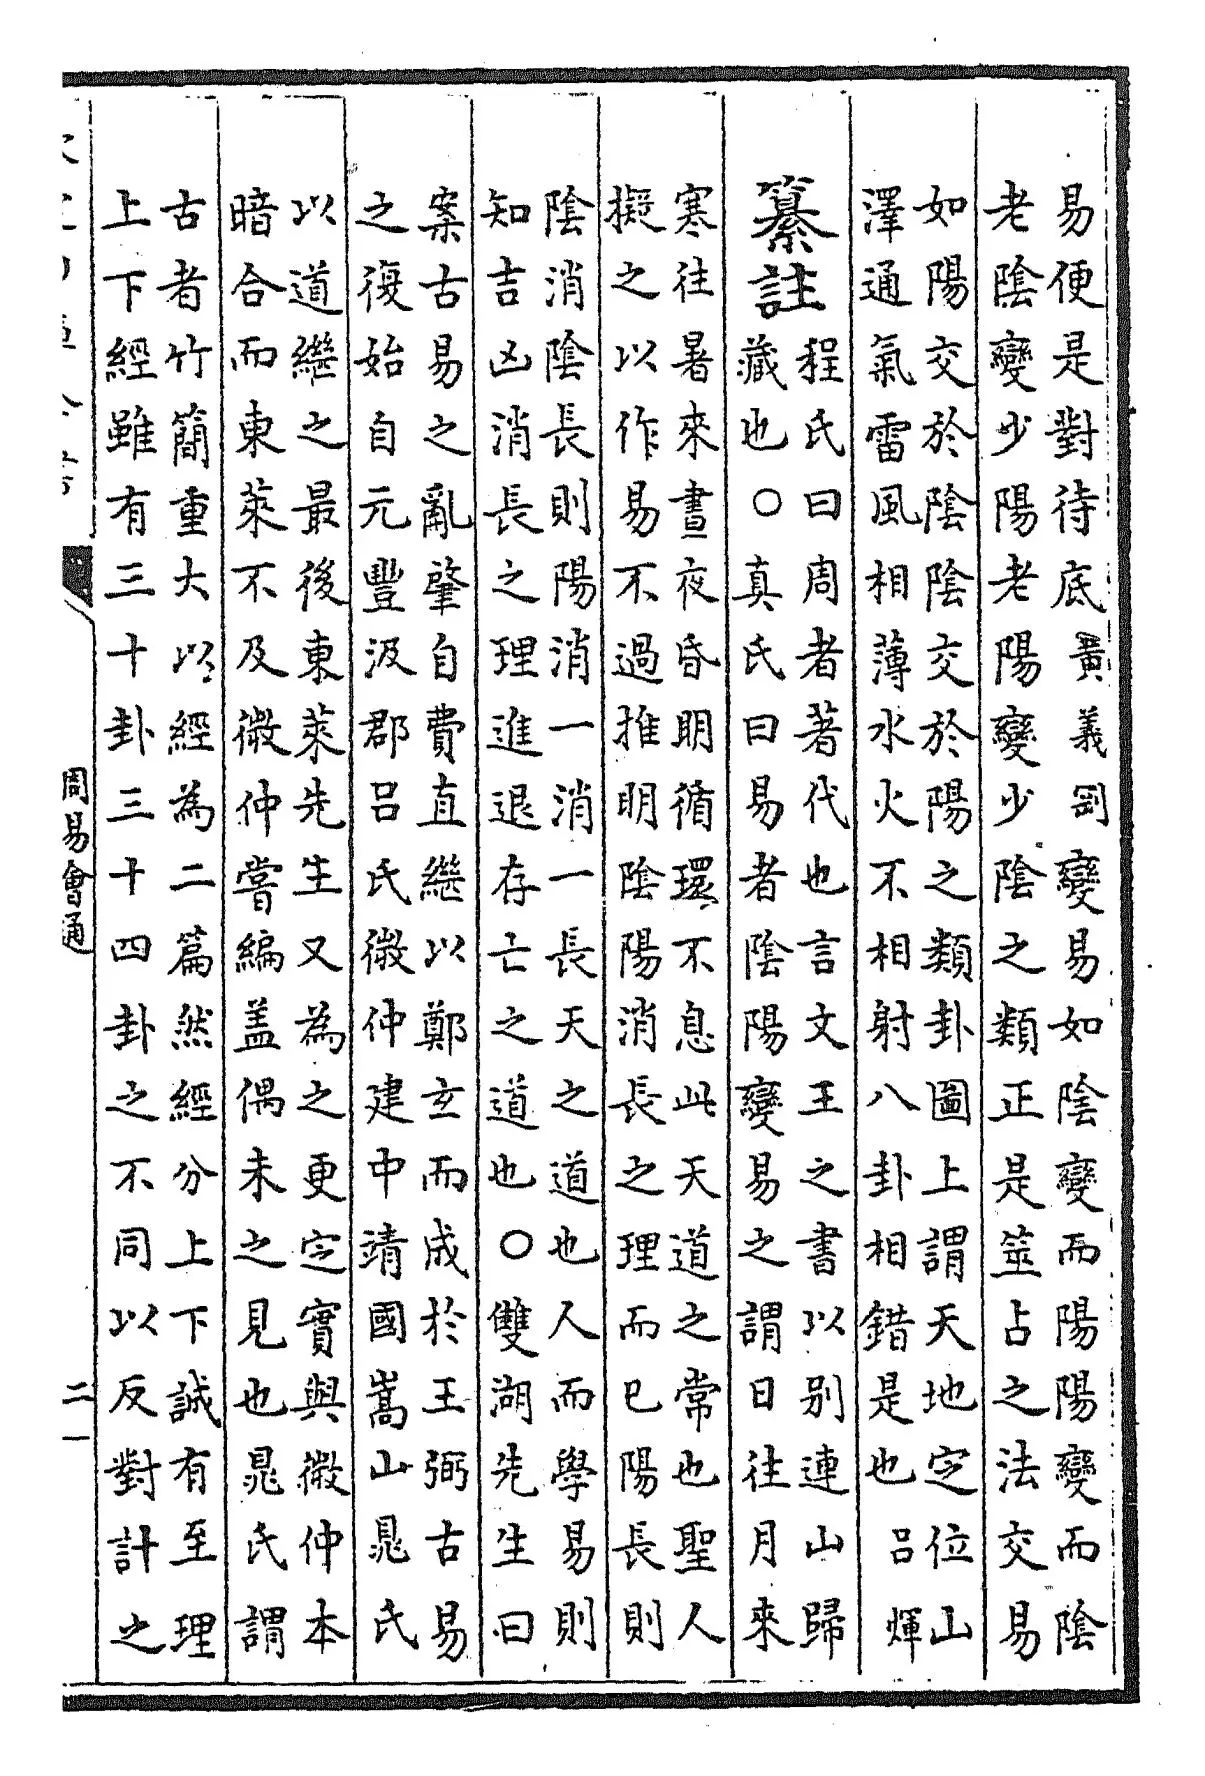 易便是對待底黃義剛變易如陰變而陽陽變而陰
老陰變少陽老陽變少陰之類正是筮占之法交易
如陽交於陰陰交於陽之類卦圖上謂天地定位山
澤通氣雷風相薄水火不相射八卦相錯是也呂煇
纂註
程氏曰周者著代也言文王之書以別連山歸
藏也○真氏曰易者陰陽變易之謂日往月來
寒往暑來晝夜昏明循環不息此天道之常也聖人
擬之以作易不過推明陰陽消長之理而已陽長則
陰消陰長則陽消一消一長天之道也人而學易則
知吉凶消長之理進退存亡之道也○雙湖先生曰
案古易之亂肇自費直繼以鄭玄而成於王弼古易
之復始自元豐汲郡呂氏微仲建中靖國嵩山晁氏
以道繼之最後東萊先生又為之更定實與微仲本
暗合而東萊不及微仲嘗編盖偶未之見也晁氏謂
古者竹簡重大以經為二篇然經分上下誠有至理
上下經雖有三十卦三十四卦之不同以反對計之
周易會通
二一